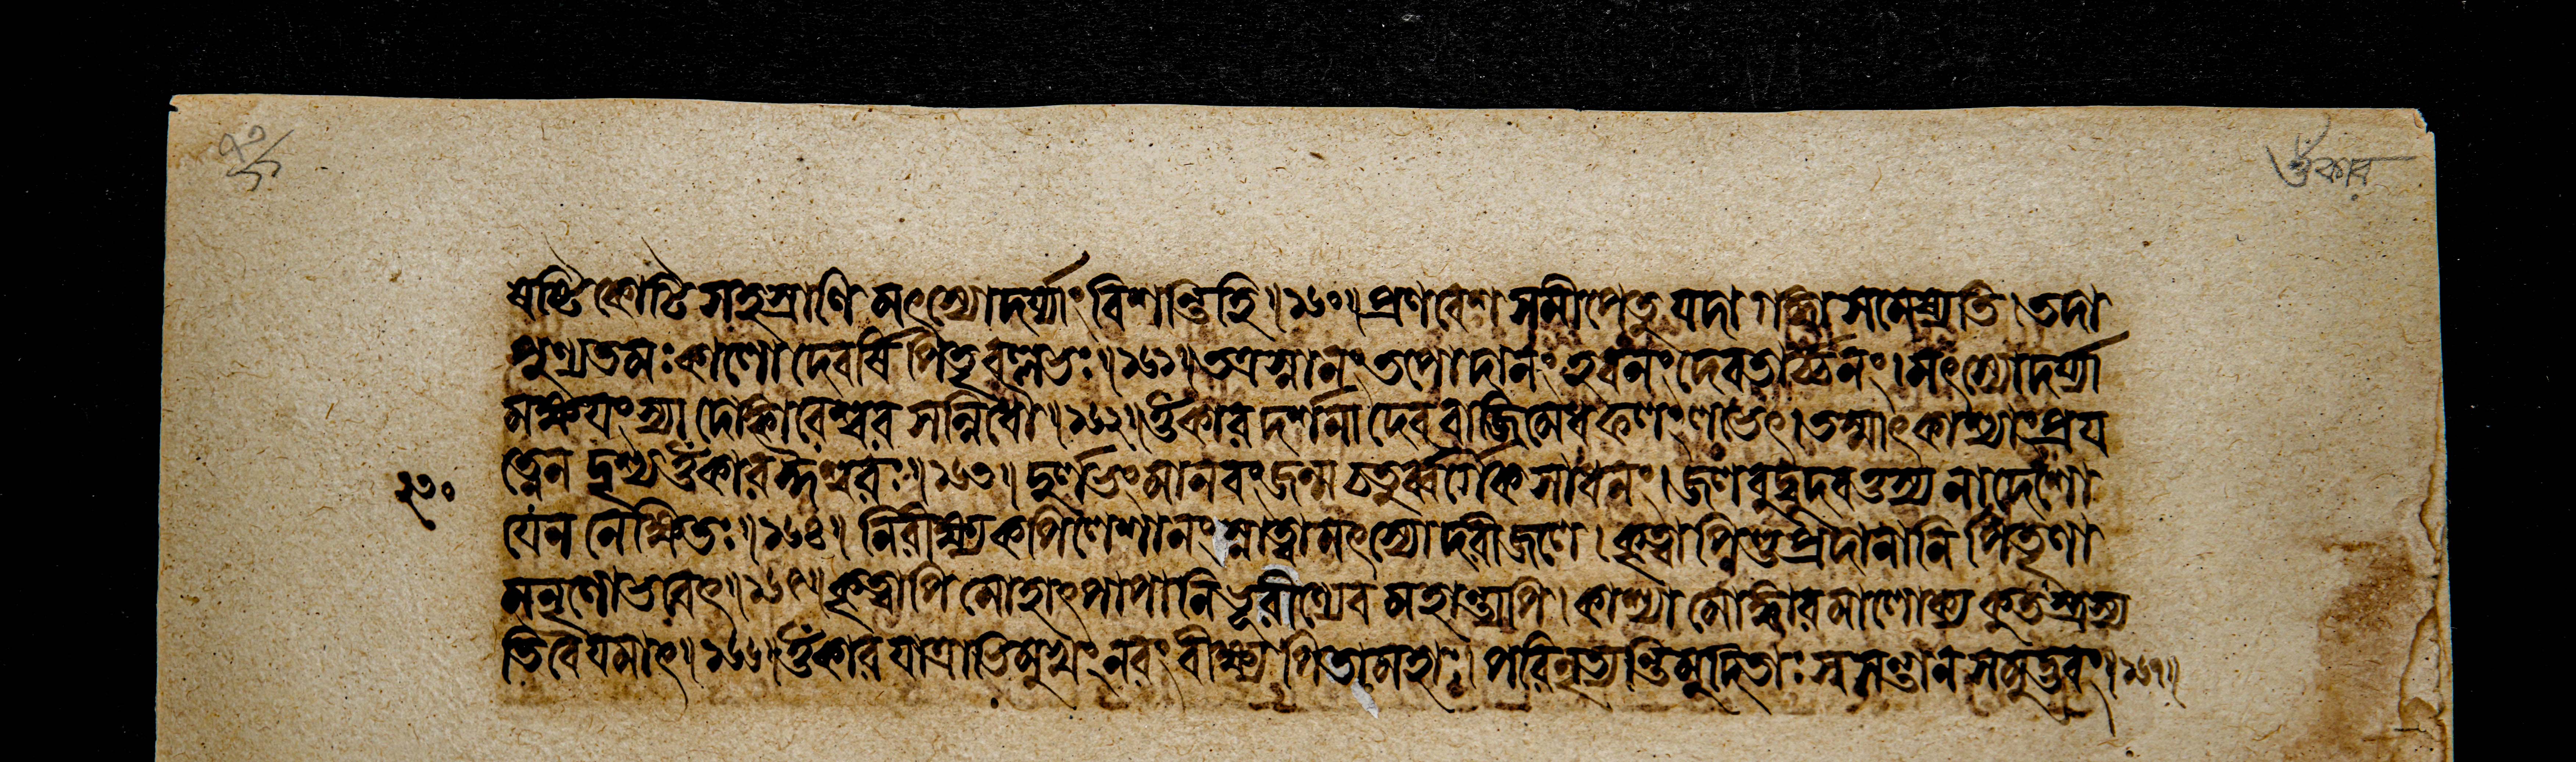 ওঁকার
ষষ্টি কোটি সহস্রাণি মৎস্যোদর্য্যাং বিশন্তিহি॥১৬০॥প্রণবেশ সমীপেতু যদা গঙ্গা সমেষ্যতি।তদা
পুণ্যতমঃকালো দেবর্ষি পিতৃবল্লভঃ॥১৬১॥তত্রস্নানং তপোদানং হবনং দেবতার্চ্চনং।মৎস্যোদর্য্যা
মক্ষয়ংস্যা দোঙ্কারেশ্বর সন্নিধৌ॥১৬২॥ওঁকার দর্শনা দেব বাজিমেধ ফলং লভেৎ।তস্মাৎ কাশ্যাং প্রয
ত্নেন দৃশ্য ওঁকারঈশ্বরঃ॥১৬৩॥ দুর্লভং মানবং জন্ম চতুর্ব্বর্গৈক সাধনং।জলবুদ্বুদবত্তস্য নাদেশো
২৩০
যেন নেক্ষিতঃ॥১৬৪॥ নিরীক্ষ্য কপিলেশানং স্নাত্বা মৎস্যোদরীজলে।কৃত্বা পিণ্ডপ্রদানানি পিতৄণা
মনৃণোভবেৎ॥১৬৫॥কৃত্বাপি মোহাৎ পাপানি ভূরীণ্যেব মহান্ত্যপি।কাশ্যা মোঙ্কারমালোক্য কুতস্ত্রস্য
তিবৈ যমাৎ॥১৬৬॥ওঁকার যাত্রাভিমুখং নরং বীক্ষ্য পিতামহাঃ।পরিনৃত্যন্তি মুদিতাঃ স্বসন্তান সমুদ্ভবং॥১৬৭॥